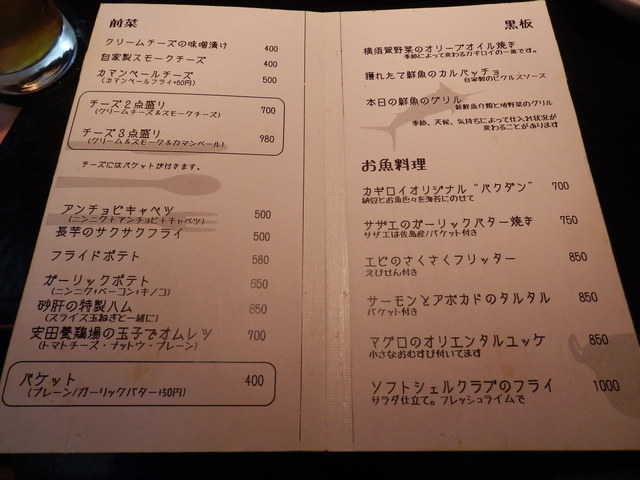 前菜
クリームチーズの味噌漬け 400
自家製スモークチーズ 400
カマンベールチーズ 500
(カマンベールフライ+50円)
チーズ2点盛り 700
(クリームチーズ&スモークチーズ)
チーズ3点盛り 980
(クリーム&スモーク&カマンベール)
チーズにはバケットが付きます。
アンチョビキャベツ 500
(ニンニク+アンチョビ+キャベツ)
長芋のサクサクフライ 500
フライドポテト 580
ガーリックポテト 650
(ニンニク・ベーコン・キノコ)
砂肝の特製ハム 650
(スライス玉ねぎと一緒に)
安田養鶏場の玉子でオムレツ 700
(トマトチーズ・ナットウ・プレーン)
バケット 400
(プレーン/ガーリックバター+50円)
黒板
横須賀野菜のオリーブオイル焼き
季節によって変わるカギロイの一皿です。
獲れたて鮮魚のカルパッチョ
自家製のピクルスソース
本日の鮮魚のグリル
新鮮魚介類と地野菜のグリル
季節、天候、気持ちによって仕入れ状況が
変わることがあります
お魚料理
カギロイオリジナル "バクダン" 700
納豆とお魚色々を海苔にのせて
サザエのガーリックバター焼き 750
サザエは佐島産/バケット付き
エビのさくさくフリッター 850
えびせん付き
サーモンとアボカドのタルタル 850
バケット付き
マグロのオリエンタルユッケ 850
小さなおむすび付いてます
ソフトシェルクラブのフライ 1000
サラダ仕立て。フレッシュライムで